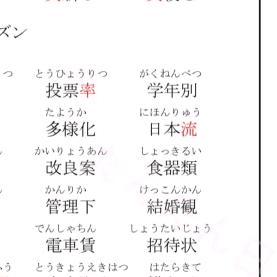 ズン
つ とうひょうりつ がくねんべつ
投票率 学年別
たようか にほんりゅう
多様化 日本流
かいりょうあん しょっきるい
改良案 食器類
かんりか けっこんかん
管理下 結婚観
でんしゃちん しょうたいじょう
電車賃 招待状
う とうきょうえきはつ はたらきて